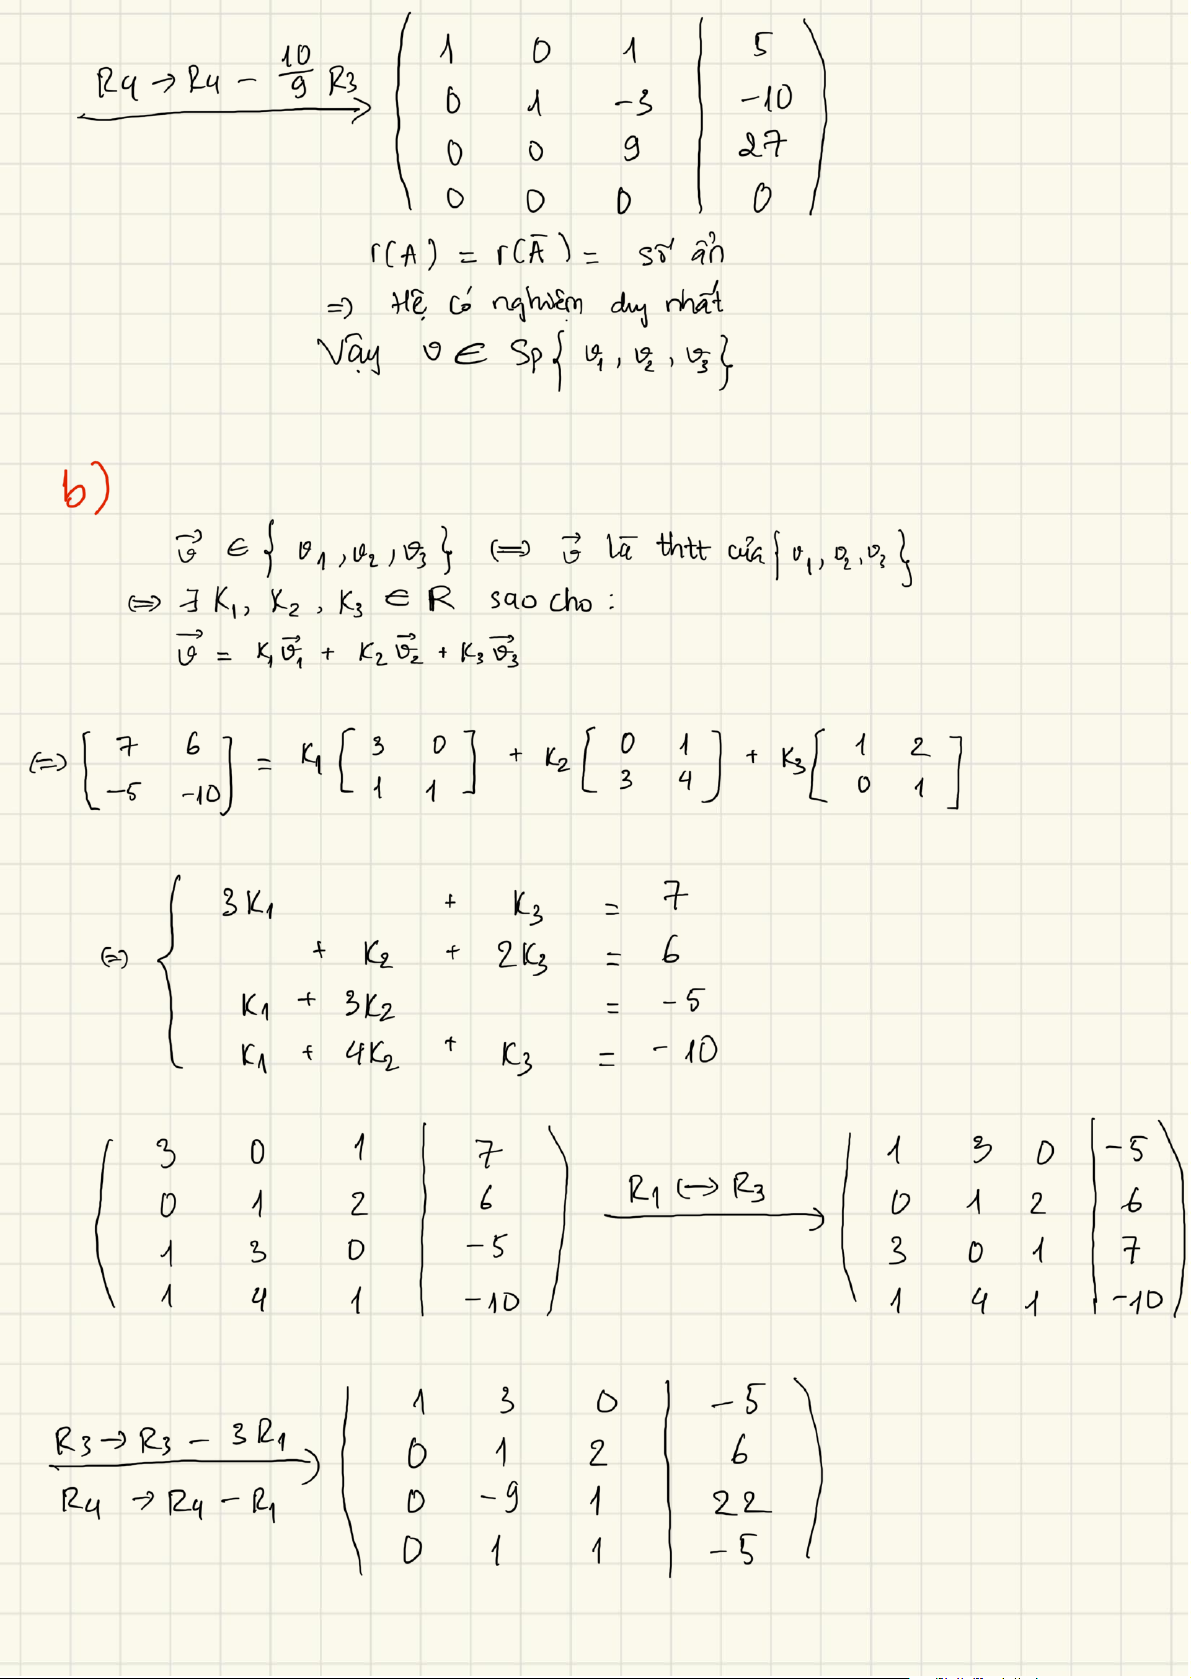 R4 → R4 − 10/9 R3
( 1 0 1 | 5 )
( 0 1 −3 | −10 )
( 0 0 9 | 27 )
( 0 0 0 | 0 )
r(A) = r(Ā) = số ẩn
=> Hệ có nghiệm duy nhất
Vậy v ∈ Sp{ v1, v2, v3 }
b)
v⃗ ∈ { v1, v2, v3 } <=> v⃗ là thtt của { v1, v2, v3 }
<=> ∃ K1, K2, K3 ∈ R sao cho :
v⃗ = K1v⃗1 + K2v⃗2 + K3v⃗3
<=> [ 7 6 ; −5 −10 ] = K1 [ 3 0 ; 1 1 ] + K2 [ 0 1 ; 3 4 ] + K3 [ 1 2 ; 0 1 ]
<=> { 3K1 + K3 = 7
+ K2 + 2K3 = 6
K1 + 3K2 = −5
K1 + 4K2 + K3 = −10
( 3 0 1 | 7 )
( 0 1 2 | 6 )
( 1 3 0 | −5 )
( 1 4 1 | −10 )
R1 <-> R3
( 1 3 0 | −5 )
( 0 1 2 | 6 )
( 3 0 1 | 7 )
( 1 4 1 | −10 )
R3 → R3 − 3R1
R4 → R4 − R1
( 1 3 0 | −5 )
( 0 1 2 | 6 )
( 0 −9 1 | 22 )
( 0 1 1 | −5 )